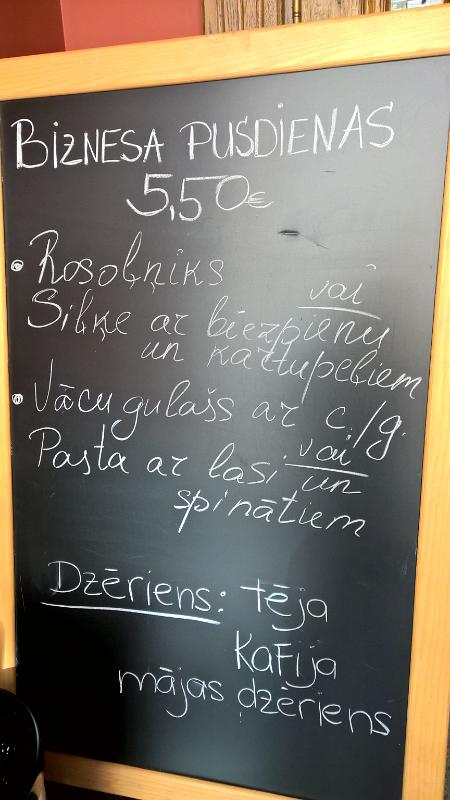 BIZNESA PUSDIENAS
5,50€
• Rosoļņiks
vai
Siļķe ar biezpienu
un kartupeļiem
• Vācu gulašs ar c./g.
vai
Pasta ar lasi un
spinātiem
Dzēriens: tēja
Kafija
mājas dzēriens